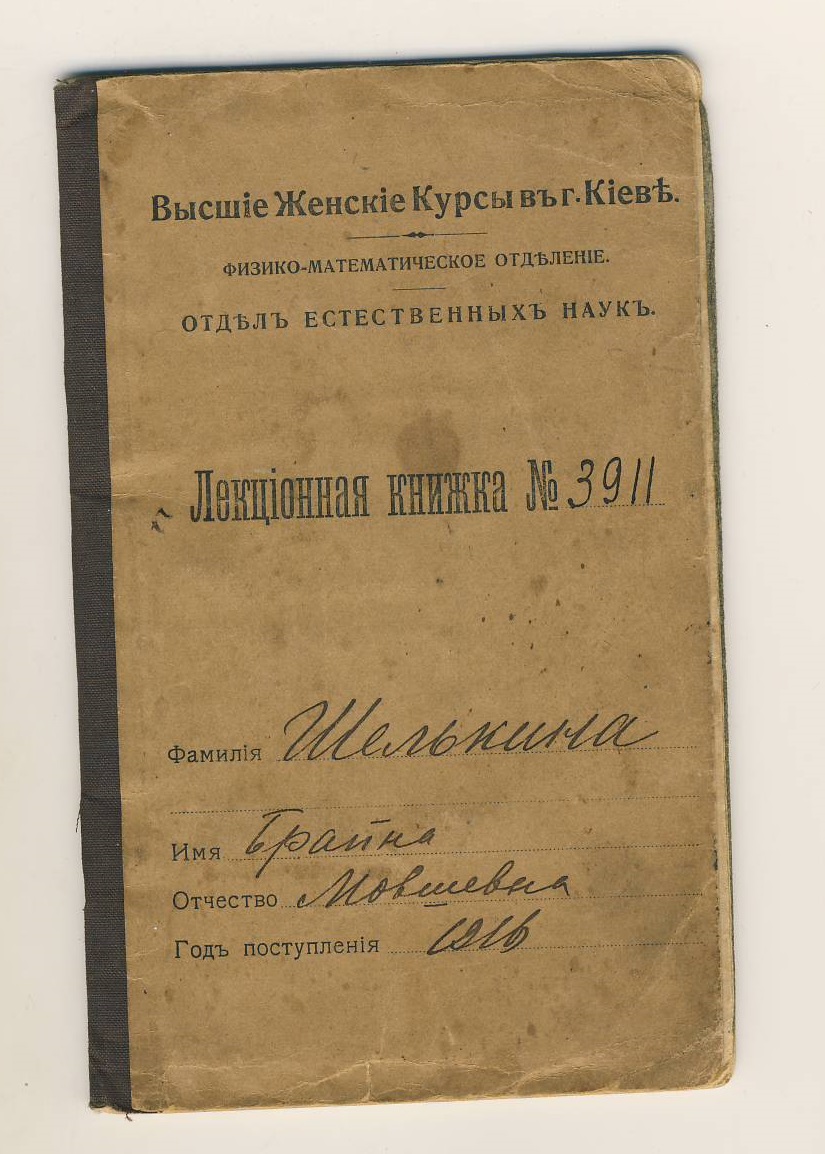 Высшіе Женскіе Курсы въ г. Кіевѣ.
ФИЗИКО-МАТЕМАТИЧЕСКОЕ ОТДѢЛЕНІЕ.
ОТДѢЛЪ ЕСТЕСТВЕННЫХЪ НАУКЪ.
Лекціонная книжка № 3911
Фамилія Шелькина
Имя Брайна
Отчество Мовшевна
Годъ поступленія 1916